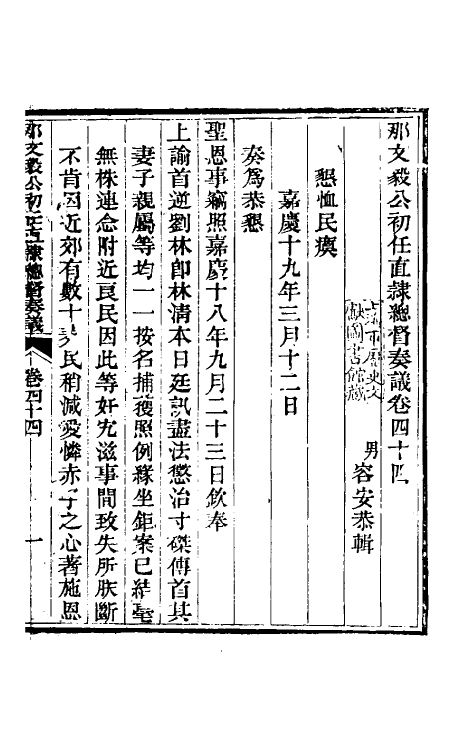 那文毅公初任直隸總督奏議卷四十四
男容安恭輯
上海市歷史文
獻圖書館藏
懇恤民瘼
嘉慶十九年三月十二日
奏爲恭懇
聖恩事竊照嘉慶十八年九月二十三日欽奉
上諭首逆劉林卽林清本日廷訊盡法懲治寸磔傳首其
妻子親屬等均一一按名捕獲照例緣坐鉅案已結毫
無株連念附近良民因此等奸宄滋事間致失所朕斷
不肯因近郊有數十男民稍減愛憐赤子之心著施恩
那文毅公初任直隸總督奏議 卷四十四 一